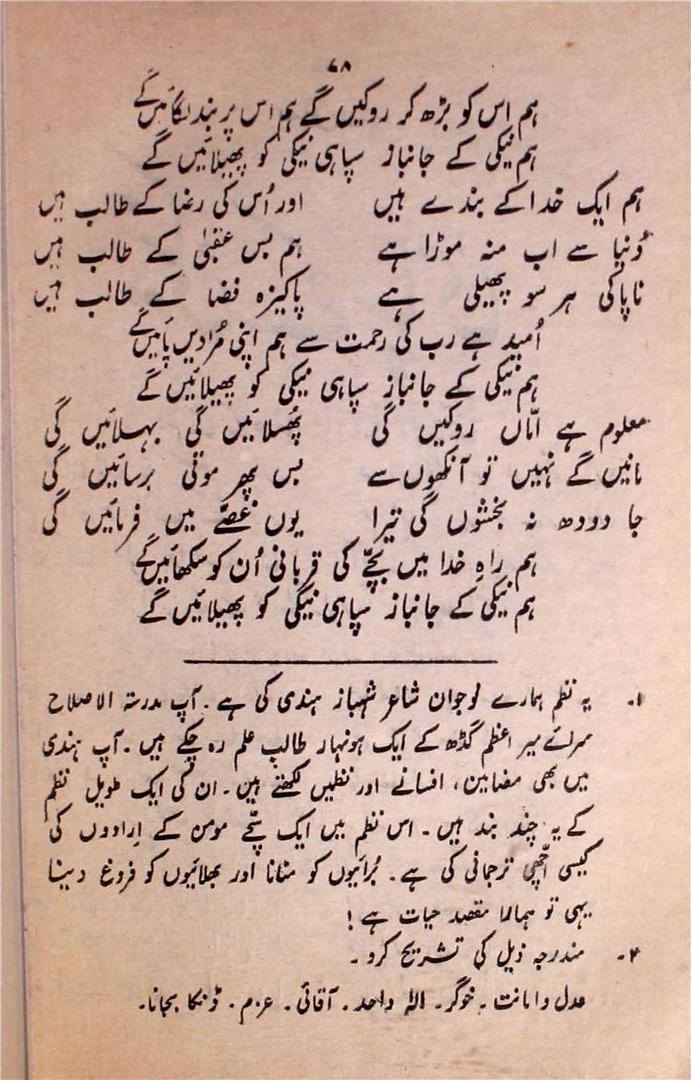 ۷۸
ہم اس کو بڑھ کر روکیں گے ہم اس پر بند لگائیں گے
ہم نیکی کے جانباز سپاہی نیکی کو پھیلائیں گے
ہم ایک خدا کے بندے ہیں اور اُس کی رضا کے طالب ہیں
دُنیا سے اب منہ موڑا ہے ہم بس عقبیٰ کے طالب ہیں
ناپاکی ہر سو پھیلی ہے پاکیزہ فضا کے طالب ہیں
اُمید ہے رب کی رحمت سے ہم اپنی مُرادیں پائیں گے
ہم نیکی کے جانباز سپاہی نیکی کو پھیلائیں گے
معلوم ہے امّاں روکیں گی پھُسلائیں گی بہلائیں گی
مانیں گے نہیں تو آنکھوں سے بس پھر موتی برسائیں گی
جا دودھ نہ بخشوں گی تیرا یوں غصّے میں فرمائیں گی
ہم راہِ خدا میں بچّے کی قربانی اُن کو سکھائیں گے
ہم نیکی کے جانباز سپاہی نیکی کو پھیلائیں گے
۱۔ یہ نظم ہمارے نوجوان شاعر شہباز ہندی کی ہے۔ آپ مدرستہ الاصلاح
سرائے میر اعظم گڈھ کے ایک ہونہار طالب علم رہ چکے ہیں۔ آپ ہندی
میں بھی مضامین، افسانے اور نظمیں لکھتے ہیں۔ ان کی ایک طویل نظم
کے یہ چند بند ہیں۔ اس نظم میں ایک سچّے مومن کے ارادوں کی
کیسی اچھّی ترجمانی کی ہے۔ بُرائیوں کو مٹانا اور بھلائیوں کو فروغ دینا
یہی تو ہمارا مقصد حیات ہے!
۲۔ مندرجہ ذیل کی تشریح کرو۔
عدل و امانت۔ خوگر۔ الٰہ واحد۔ آقائی۔ عزم۔ ڈنکا بجانا۔